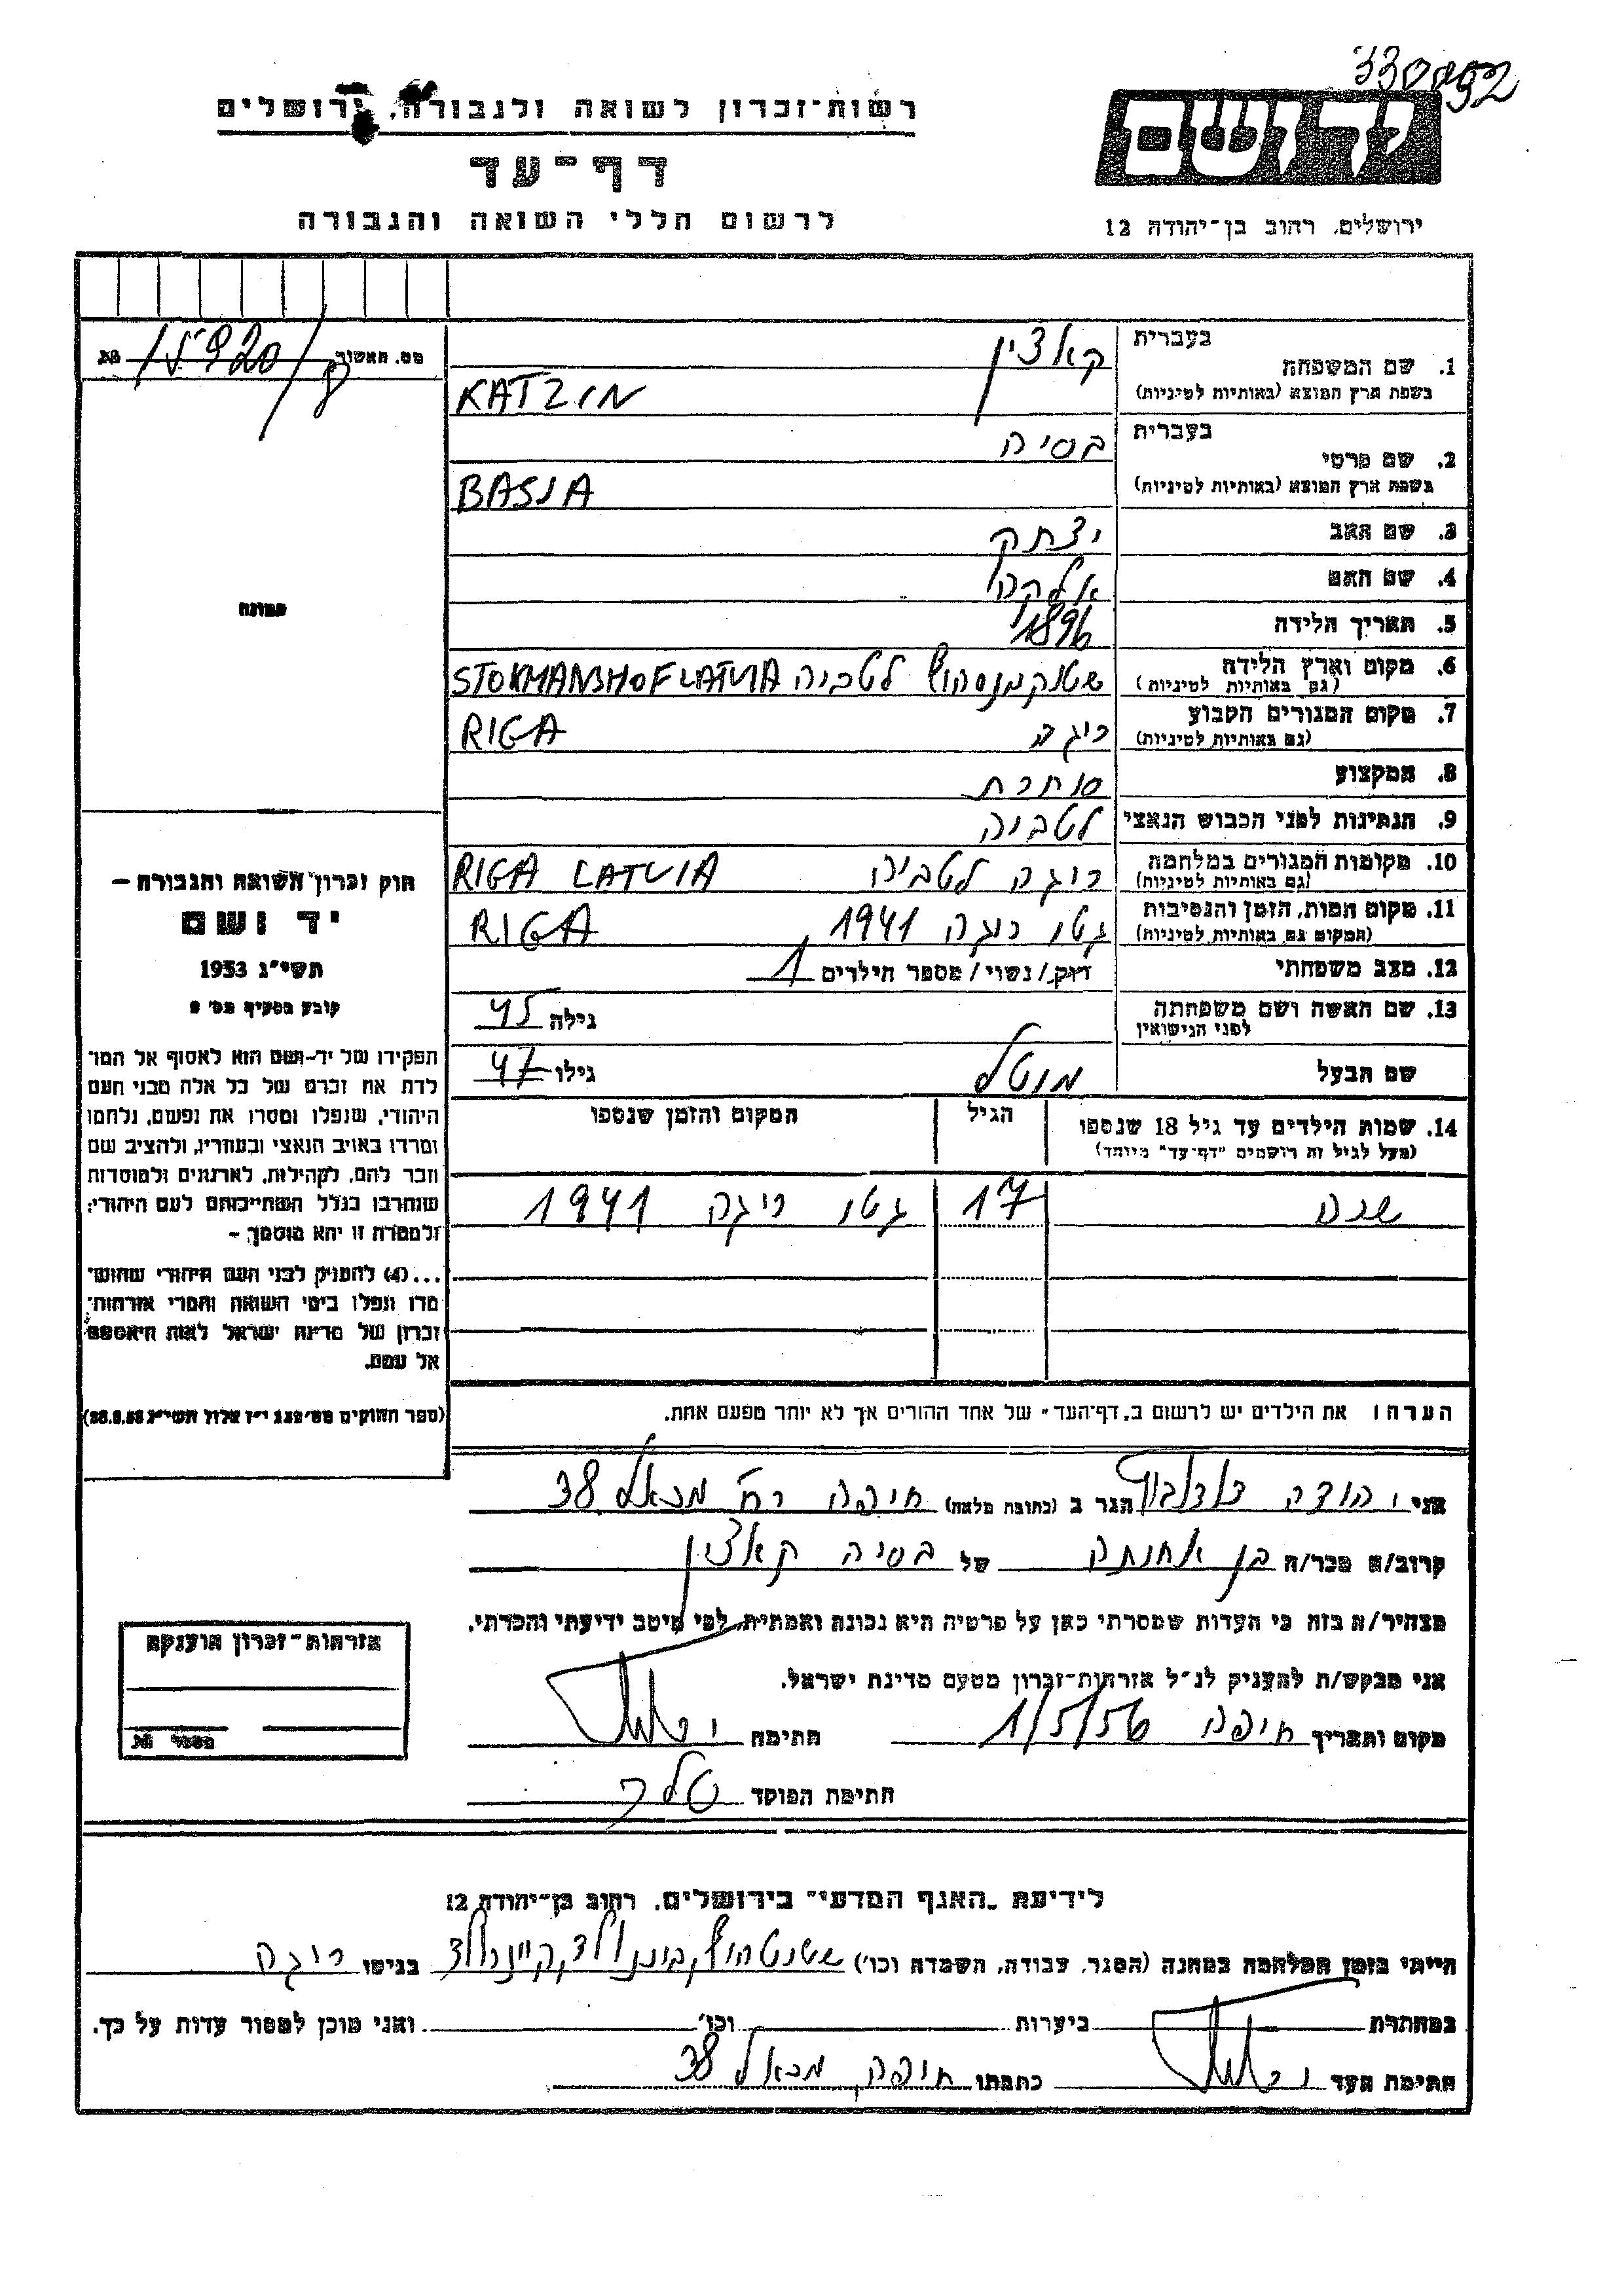 330152
רשות-זכרון לשואה ולגבורה, ירושלים
יד ושם
דף-עד
לרשום חללי השואה והגבורה
ירושלים, רחוב בן-יהודה 12
מס. האשור
1. שם המשפחה
בעברית קאצין
בשפת ארץ המוצא (באותיות לטיניות) KATZIN
2. שם פרטי
בעברית בסיה
בשפת ארץ המוצא (באותיות לטיניות) BASJA
3. שם האב יצחק
4. שם האם אלקה
5. תאריך הלידה 1896
6. מקום וארץ הלידה (גם באותיות לטיניות) שטוקמנסהוף לטביה STOKMANSHOF LATVIA
7. מקום המגורים הקבוע (גם באותיות לטיניות) ריגה RIGA
8. המקצוע סוחרת
9. הנתינות לפני הכבוש הנאצי לטביה
10. מקומות המגורים במלחמה (גם באותיות לטיניות) ריגה לטביה RIGA LATVIA
11. מקום המות, הזמן והנסיבות (המקום גם באותיות לטיניות) גטו ריגה 1941 RIGA
12. מצב משפחתי רווק/נשוי/מספר הילדים 1
13. שם האשה ושם משפחתה לפני הנישואין גילה 45
שם הבעל מוטל גילו 47
14. שמות הילדים עד גיל 18 שנספו הגיל המקום והזמן שנספו
(מעל לגיל זה רושמים "דף-עד" מיוחד)
שרה 17 גטו ריגה 1941
הערה: את הילדים יש לרשום ב"דף-העד" של אחד ההורים אך לא יותר מפעם אחת.
תמונה
חוק זכרון השואה והגבורה –
יד ושם
תשי"ג 1953
קובע בסעיף מס' 2
תפקידו של יד-ושם הוא לאסוף אל המו־
לדת את זכרם של כל אלה מבני העם
היהודי, שנפלו ומסרו את נפשם, נלחמו
ומרדו באויב הנאצי ובעוזריו, ולהציב שם
וזכר להם, לקהילות, לארגונים ולמוסדות
שנחרבו בגלל השתייכותם לעם היהודי;
ולמטרה זו יהא מוסמך –
...(4) להעניק לבני העם היהודי שהוש־
מדו ונפלו בימי השואה והמרי אזרחות־
זכרון של מדינת ישראל לאות היאספם
אל עמם.
(ספר החוקים מס' 132 י"ז אלול תשי"ג 28.8.53)
אני יהודה הגר ב (כתובת מלאה) חיפה רח' מיכאל 38
קרוב/ה מכר/ה בן אחותה של בסיה קאצין
מצהיר/ה בזה כי העדות שמסרתי כאן על פרטיה היא נכונה ואמתית, לפי מיטב ידיעתי והכרתי.
אני מבקש/ת להעניק לנ"ל אזרחות-זכרון מטעם מדינת ישראל.
מקום ותאריך חיפה 1/5/56 חתימה
חתימת הפוקד
אזרחות-זכרון הוענקה
מספר
לידיעת "האגף המדעי" בירושלים, רחוב בן-יהודה 12
הייתי בזמן המלחמה במחנה (הסגר, עבודה, השמדה וכו') בגיטו ריגה
במחתרת ביערות וכו' ואני מוכן למסור עדות על כך.
חתימת העד כתבתו חיפה, מיכאל 38